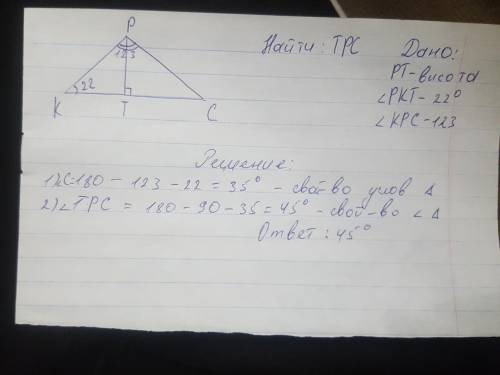 P
123
22
K T C
Найти: TPC
Дано:
PT-висота
∠PKT-22°
∠KPC-123
Решение:
1) C=180 - 123 - 22 = 35° - свой-во углов △
2) ∠TPC = 180 - 90 - 35 = 45° - свой-во ∠ △
Ответ: 45°